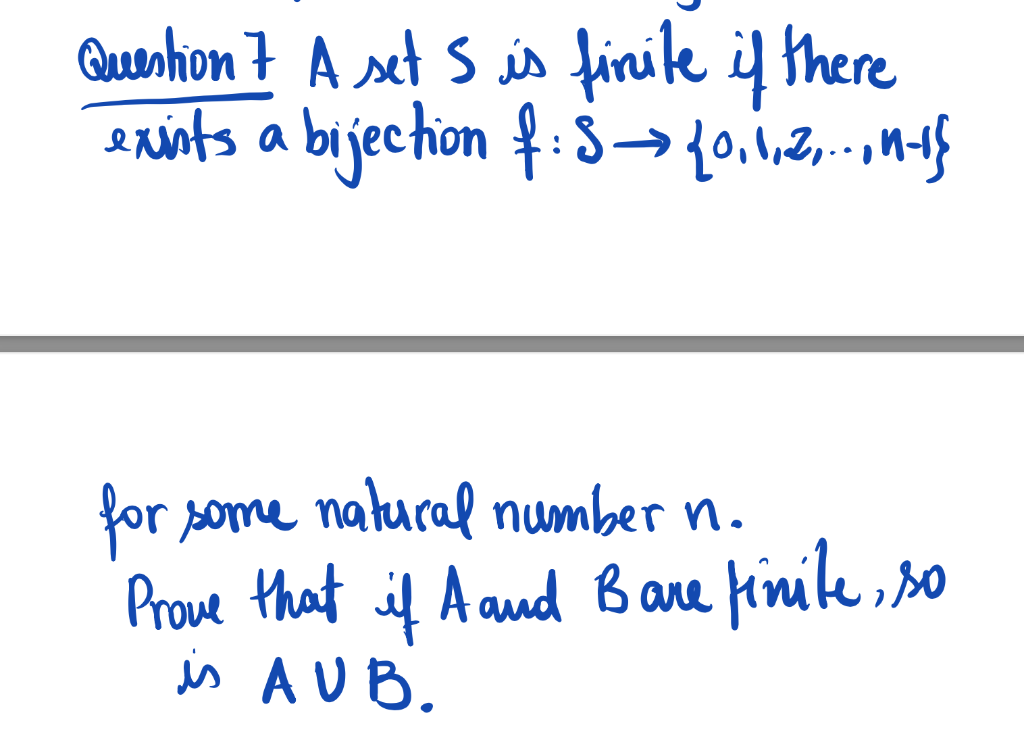 Question 7 A set S is finite if there
exists a bijection f: S → {0,1,2,..,n-1}
for some natural number n.
Prove that if A and B are finite, so
is A ∪ B.